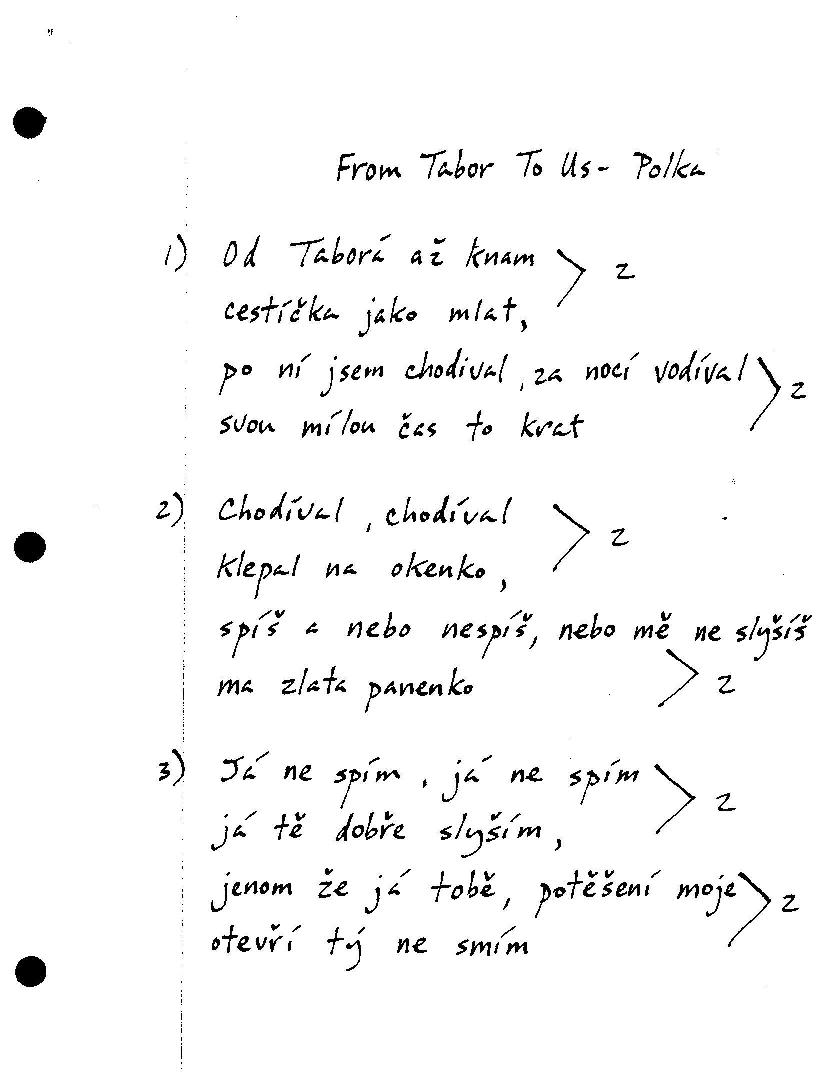 From Tabor To Us - Polka
1) Od Taborá až knam > 2
cestíčka jako mlat,
po ní jsem chodíval, za nocí vodíval > 2
svou mílou čas to krat
2) Chodíval, chodíval > 2
klepal na okenko,
spíš a nebo nespíš, nebo mě ne slyšíš
ma zlata panenko > 2
3) Já ne spím, já ne spím > 2
já tě dobře slyším,
jenom že já tobě, potěšení moje > 2
otevří tý ne smím